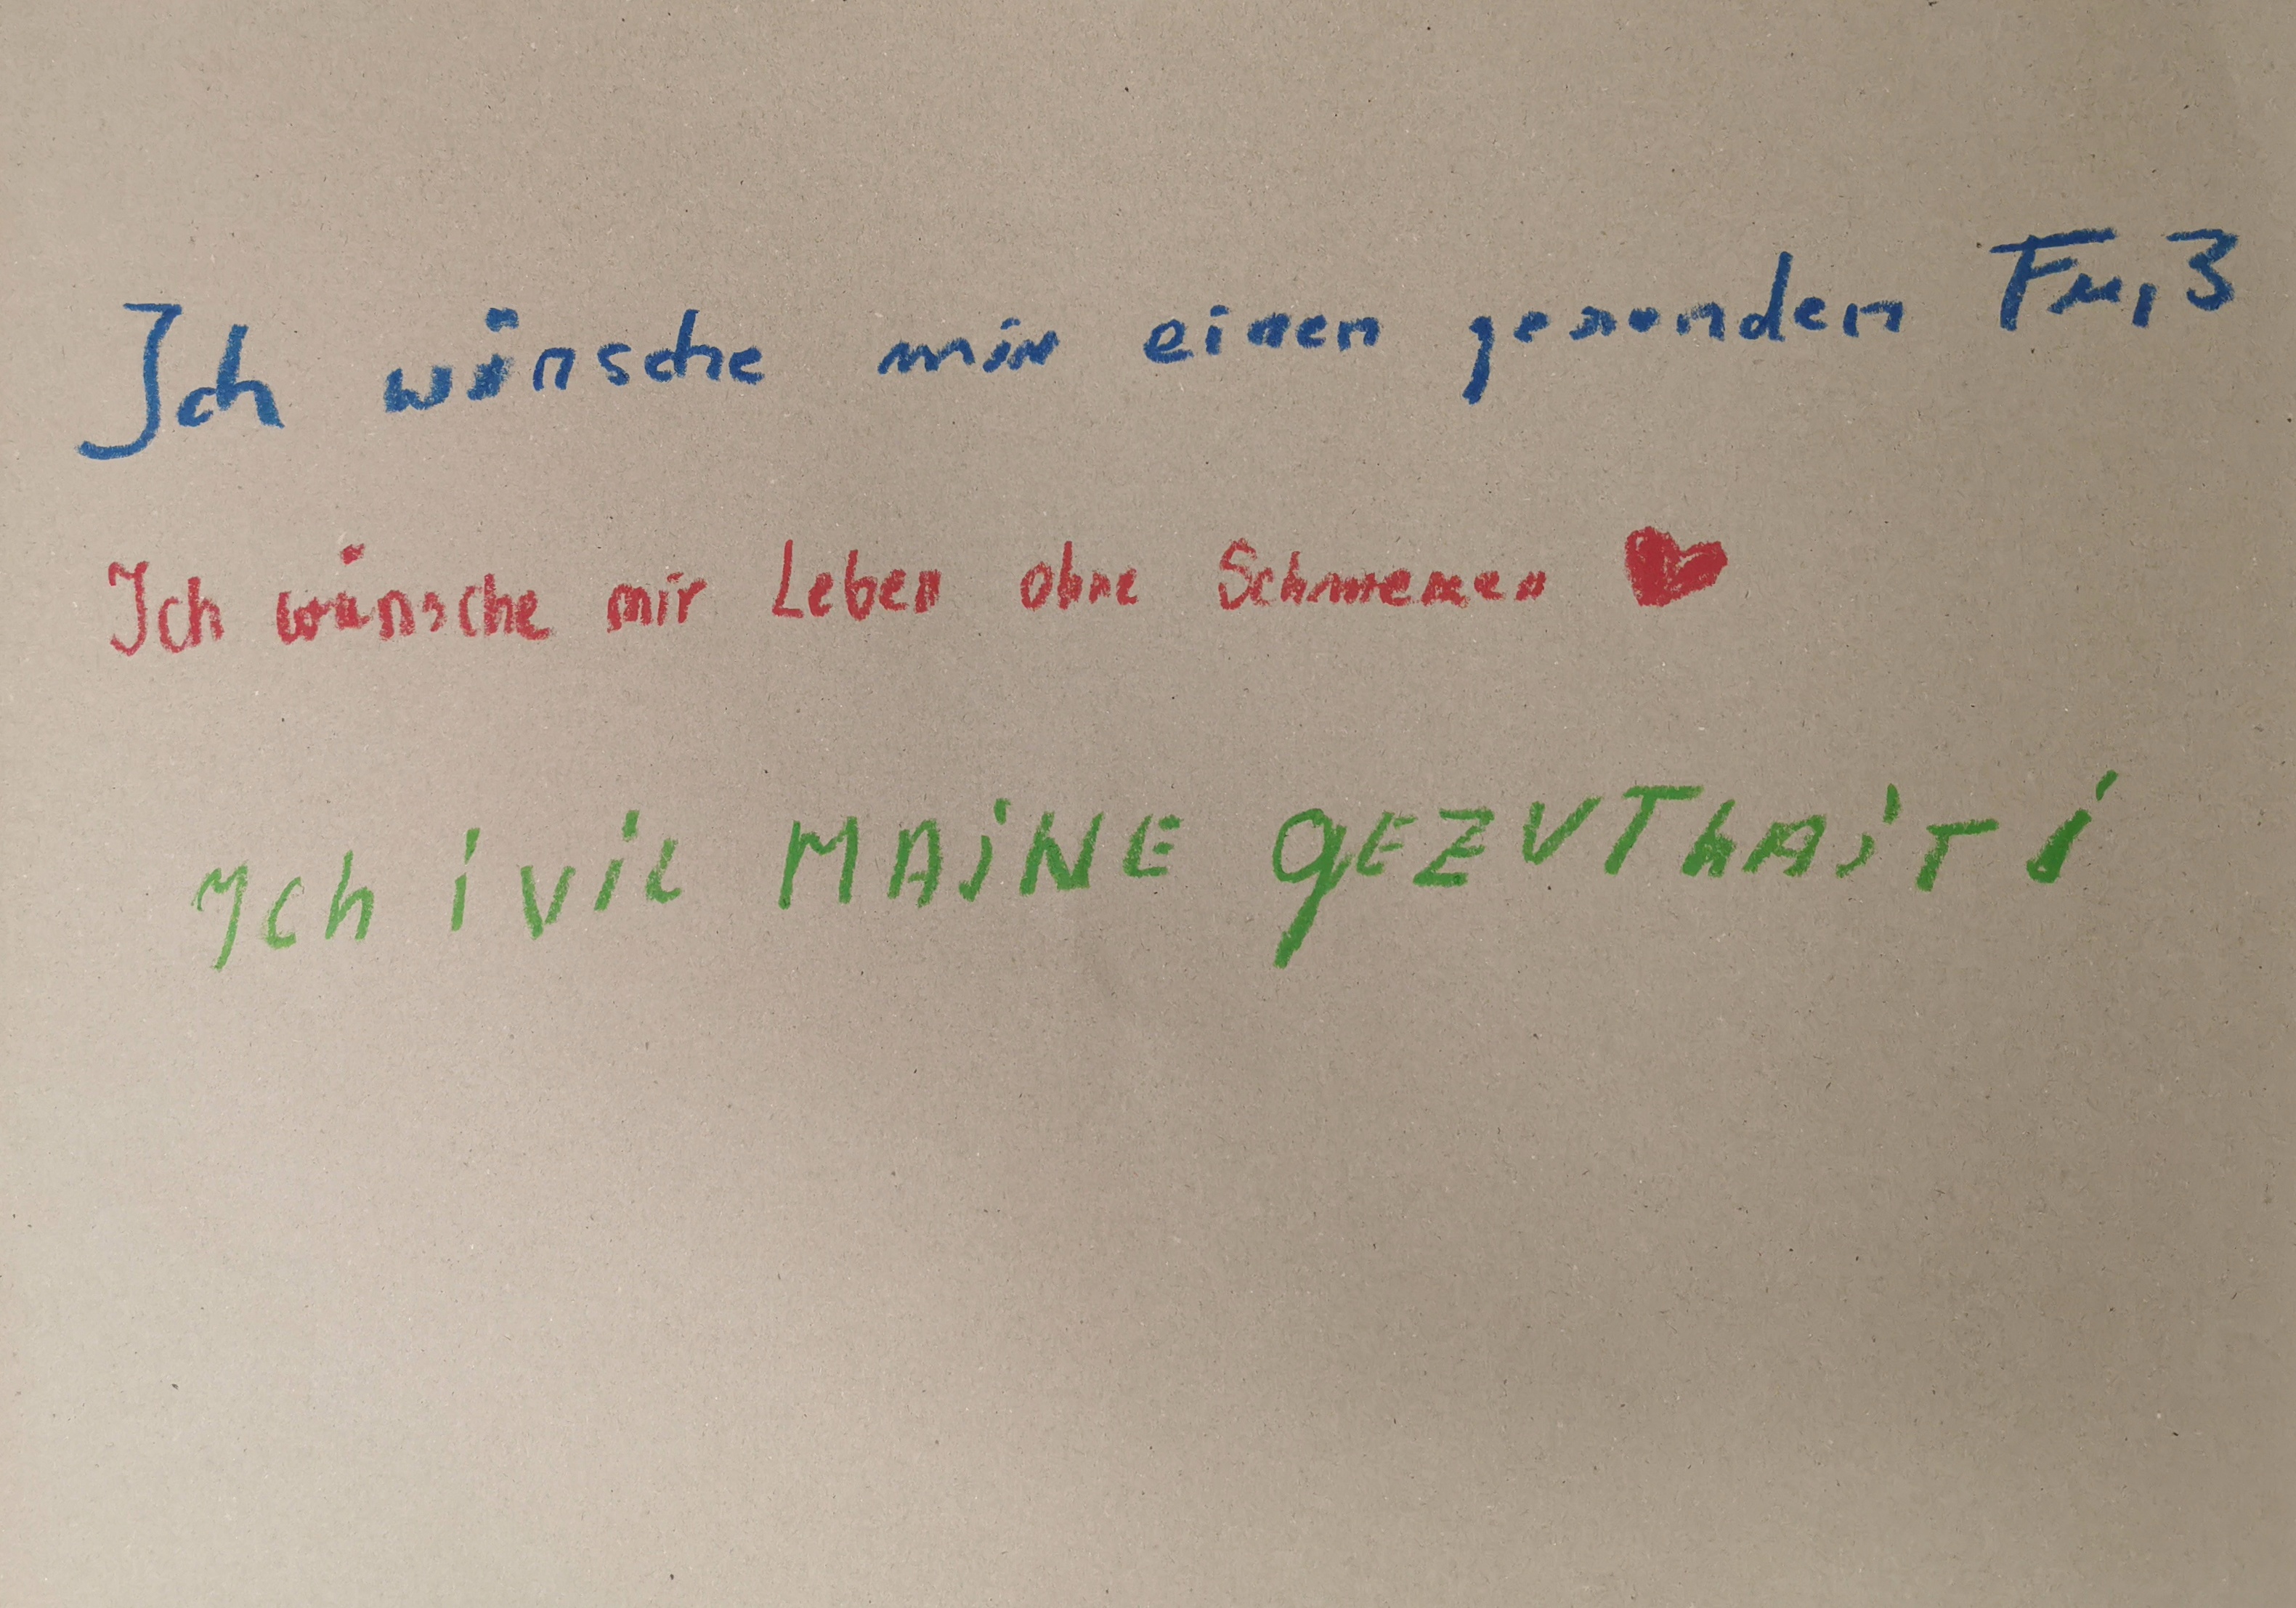 Ich wünsche mir einen gesunden Fuß
Ich wünsche mir Leben ohne Schmerzen
Ich i vil MAiNE gEZUThAiT i